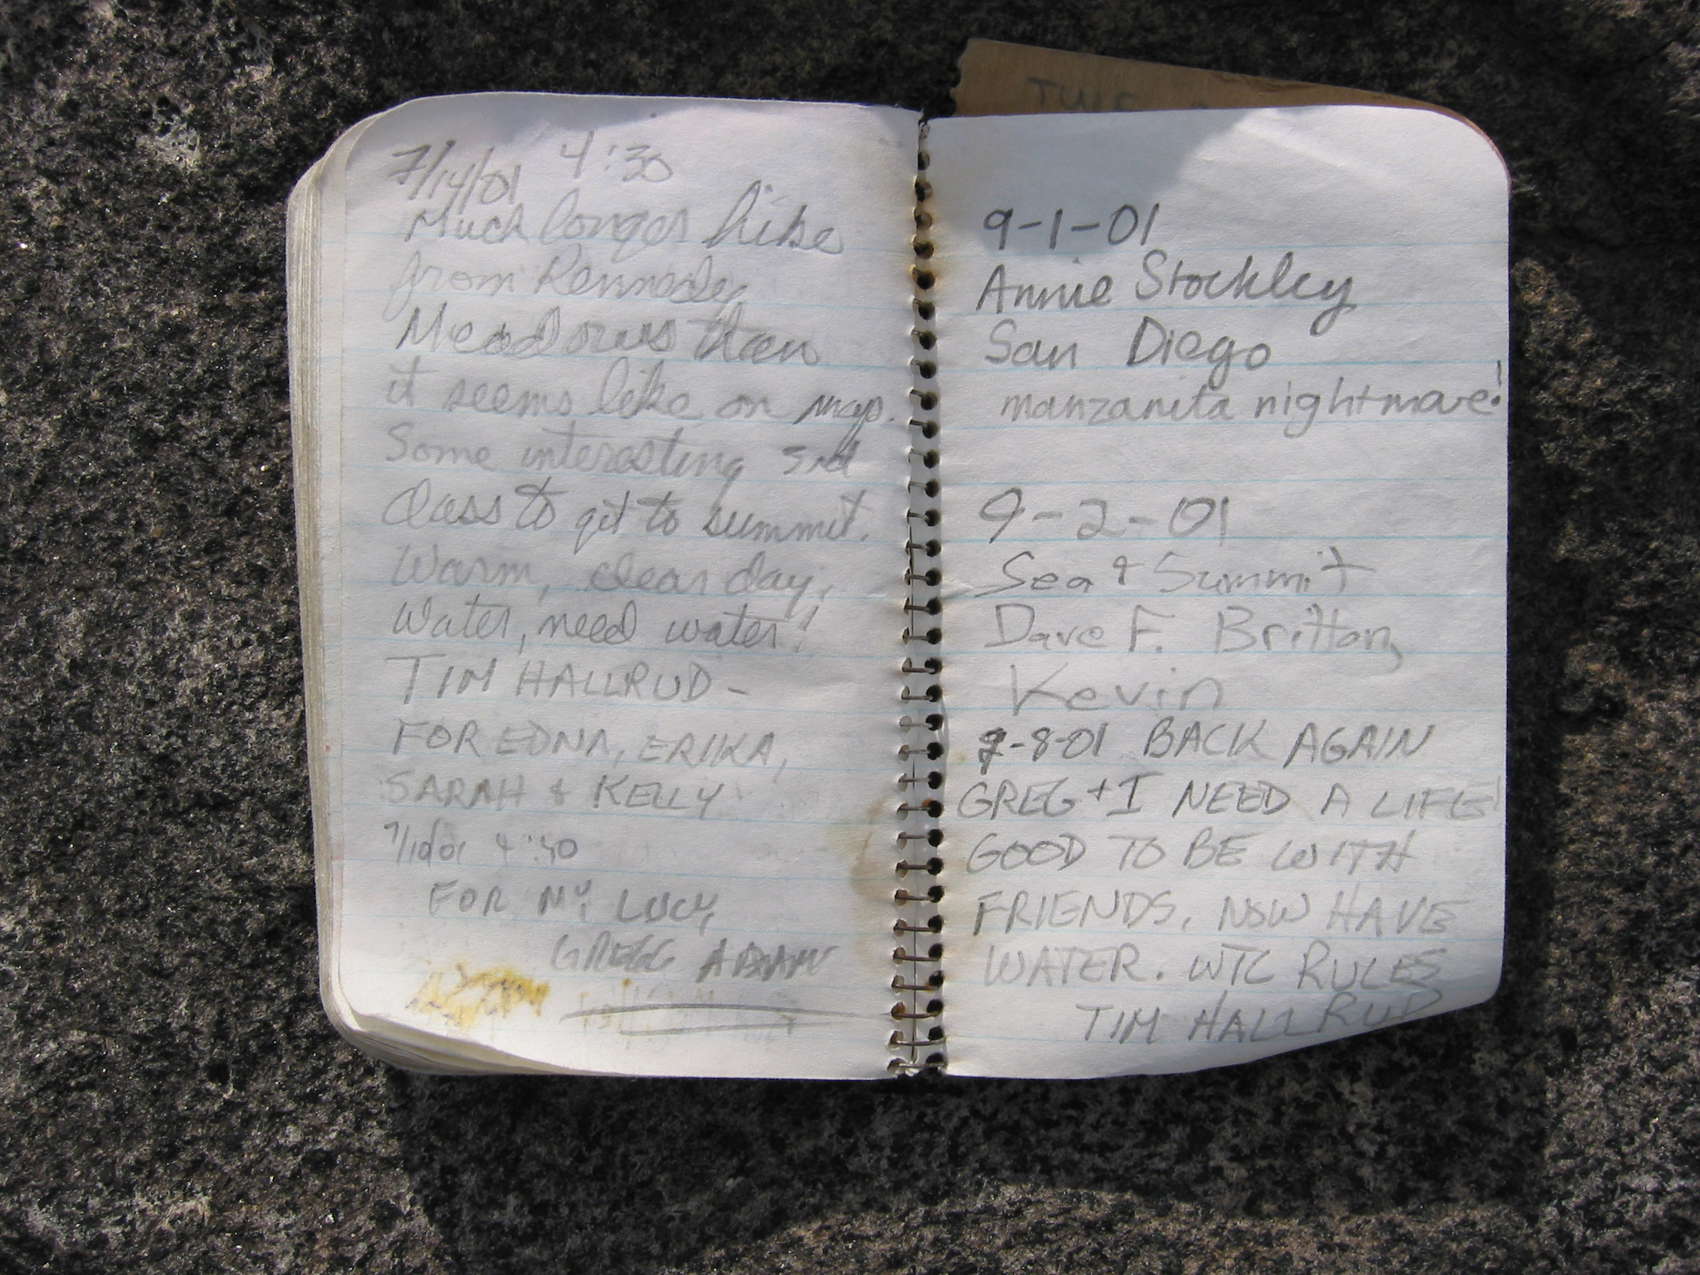 7/14/01 4:30
Much longer hike
from Kennedy
Meadows than
it seems like on map.
Some interesting 3rd
class to get to summit.
Warm, clear day,
Water, need water!
TIM HALLRUD -
FOR EDNA, ERIKA,
SARAH & KELLY
4:30
FOR MY LUCY,
GREGG ADAMS
9-1-01
Annie Stockley
San Diego
manzanita nightmare!
9-2-01
Sea & Summit
Dave F. Britton,
Kevin
9-8-01 BACK AGAIN
GREG + I NEED A LIFE!
GOOD TO BE WITH
FRIENDS. NOW HAVE
WATER. WTC RULES
TIM HALLRUD